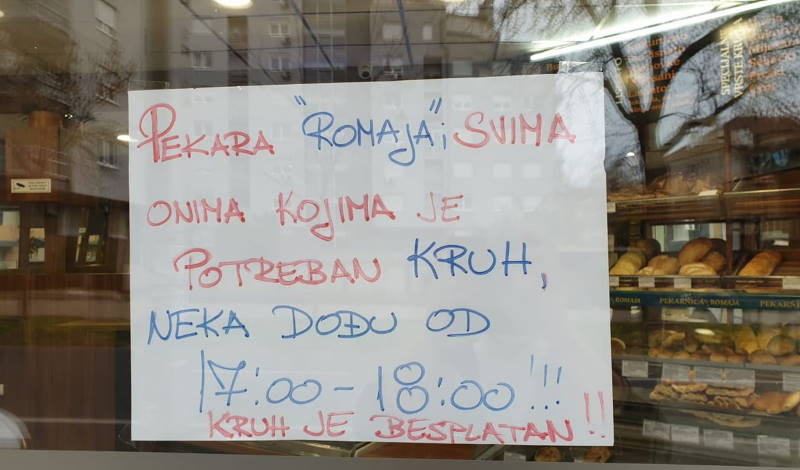 PEKARA "ROMAJA"; SVIMA
ONIMA KOJIMA JE
POTREBAN KRUH,
NEKA DOĐU OD
17:00 - 18:00 !!!
KRUH JE BESPLATAN !!
SPECIJALNE
VRSTE KRUHA
ROMAJA
PEKARNICA ROMAJA